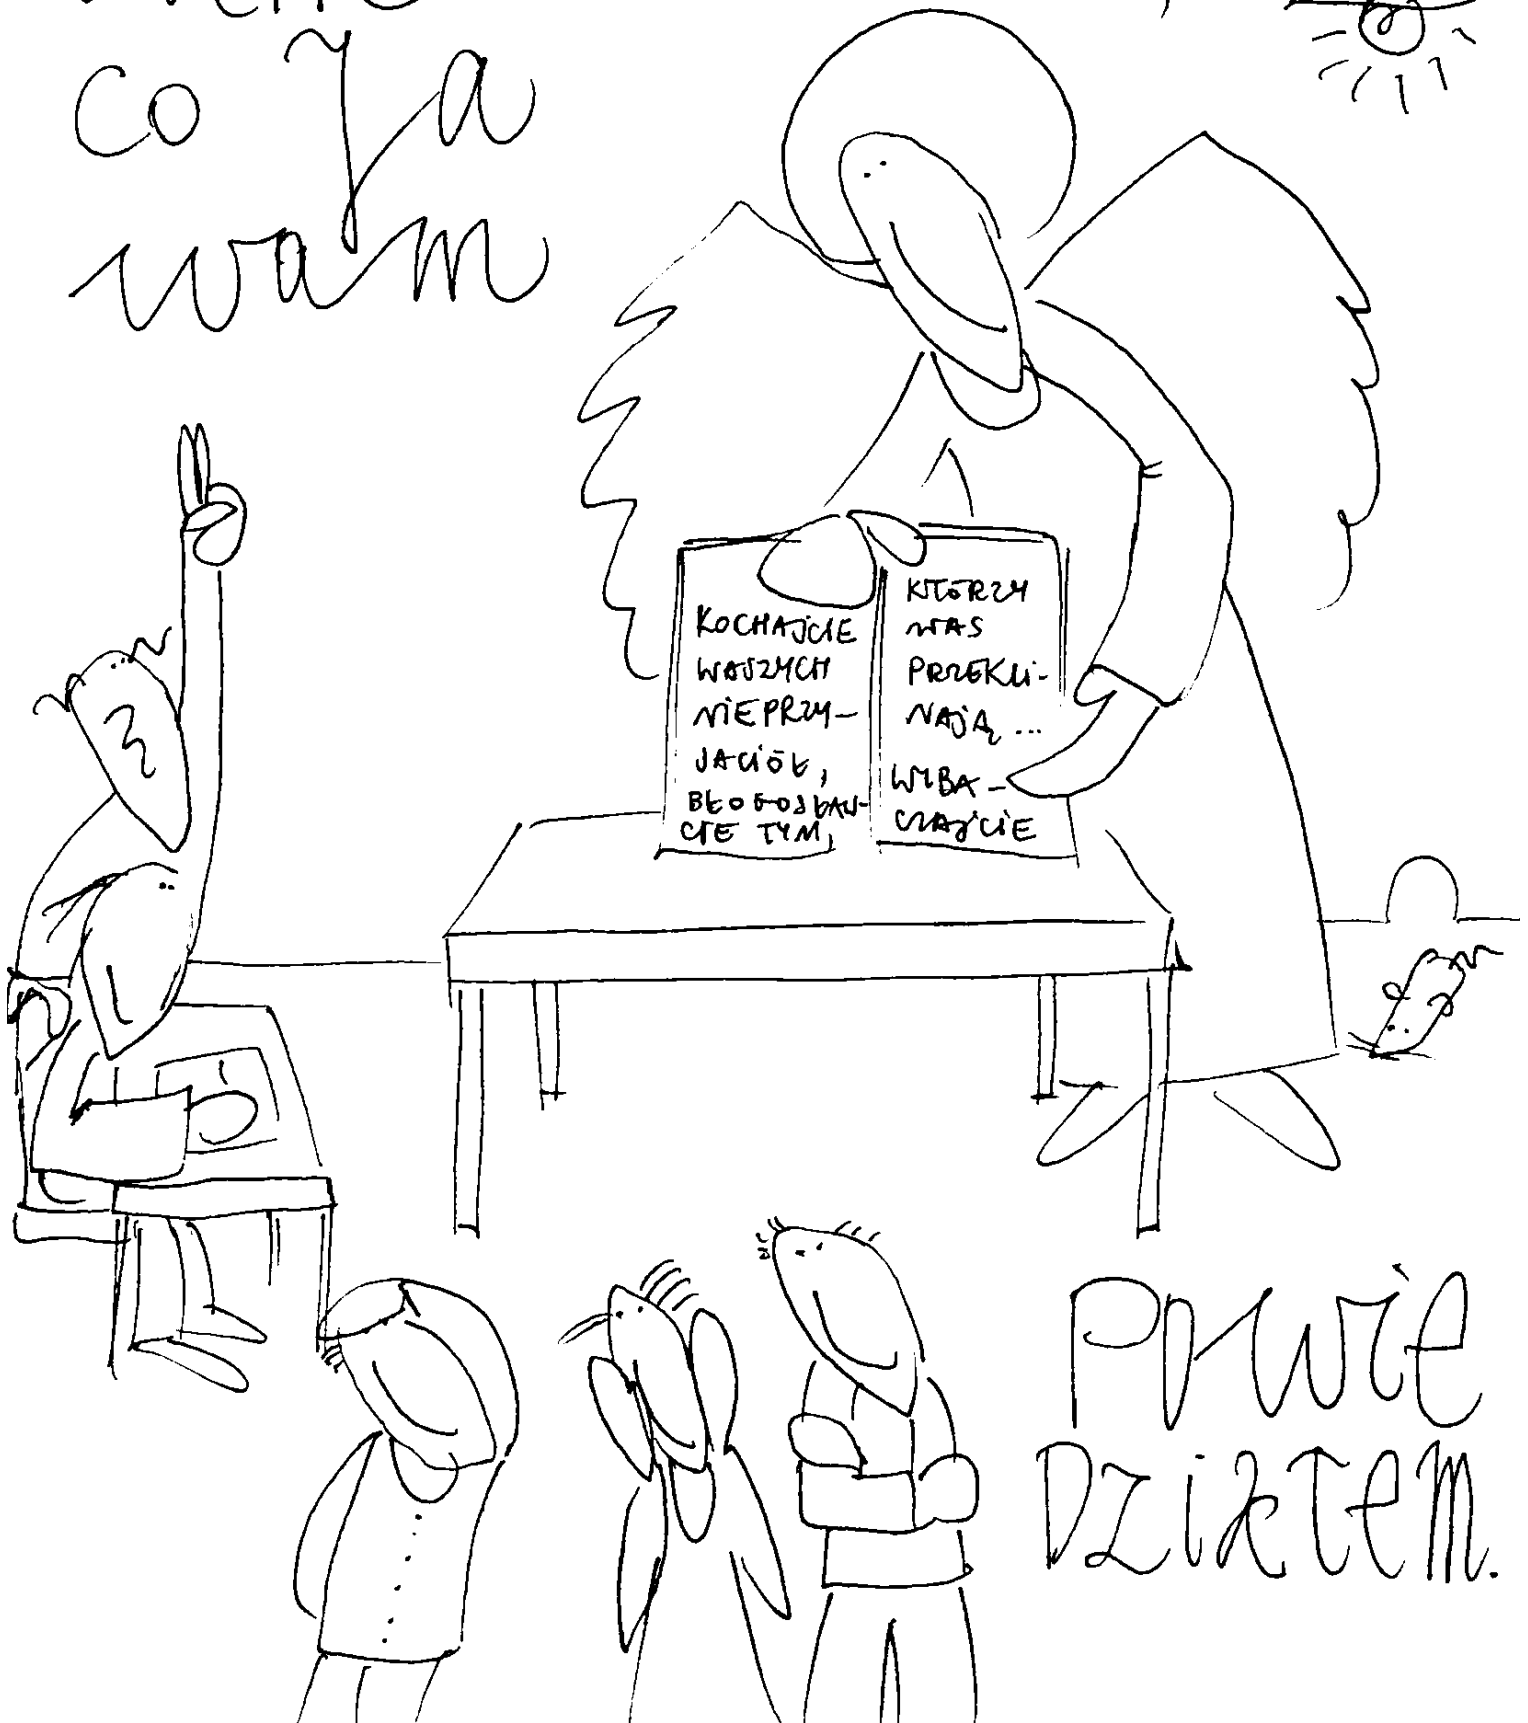 co Ja
wam
KOCHAJCIE
WASZYCH
NIEPRZY-
JACIÓŁ,
BŁOGOSŁAW-
CIE TYM,
KTÓRZY
WAS
PRZEKLI-
NAJĄ...
WYBA-
CZAJCIE
POWIE
DZIAŁEM.